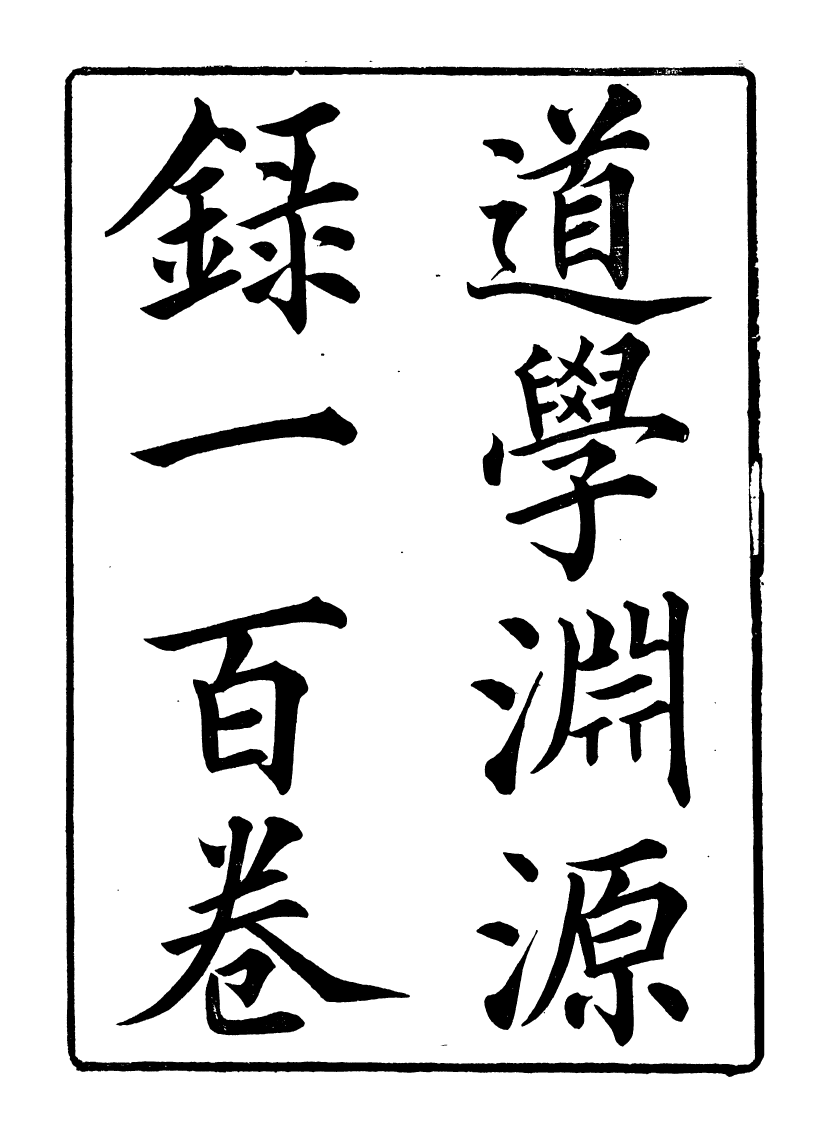 道學淵源
録一百卷